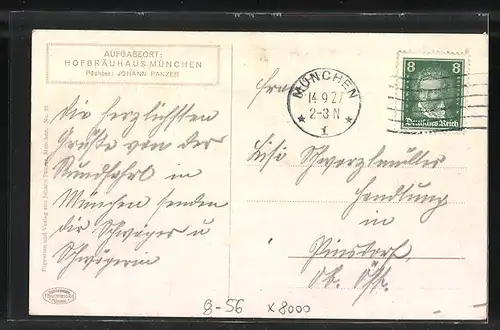 AUFGABEORT:
HOFBRÄUHAUS MÜNCHEN
Pächter: JOHANN PANZER
Die herzlichsten
Grüße von der
Rundfahrt in
München senden
dir Schwager u
Schwägerin
Eigentum und Verlag von
MÜNCHEN
14.9.27
2-3 N
1
8 8
Deutsches Reich
Frau
Lisi Schwarzlmüller
Handlung
in
Pinsdorf
Ob. Öst.
8-56 x8000